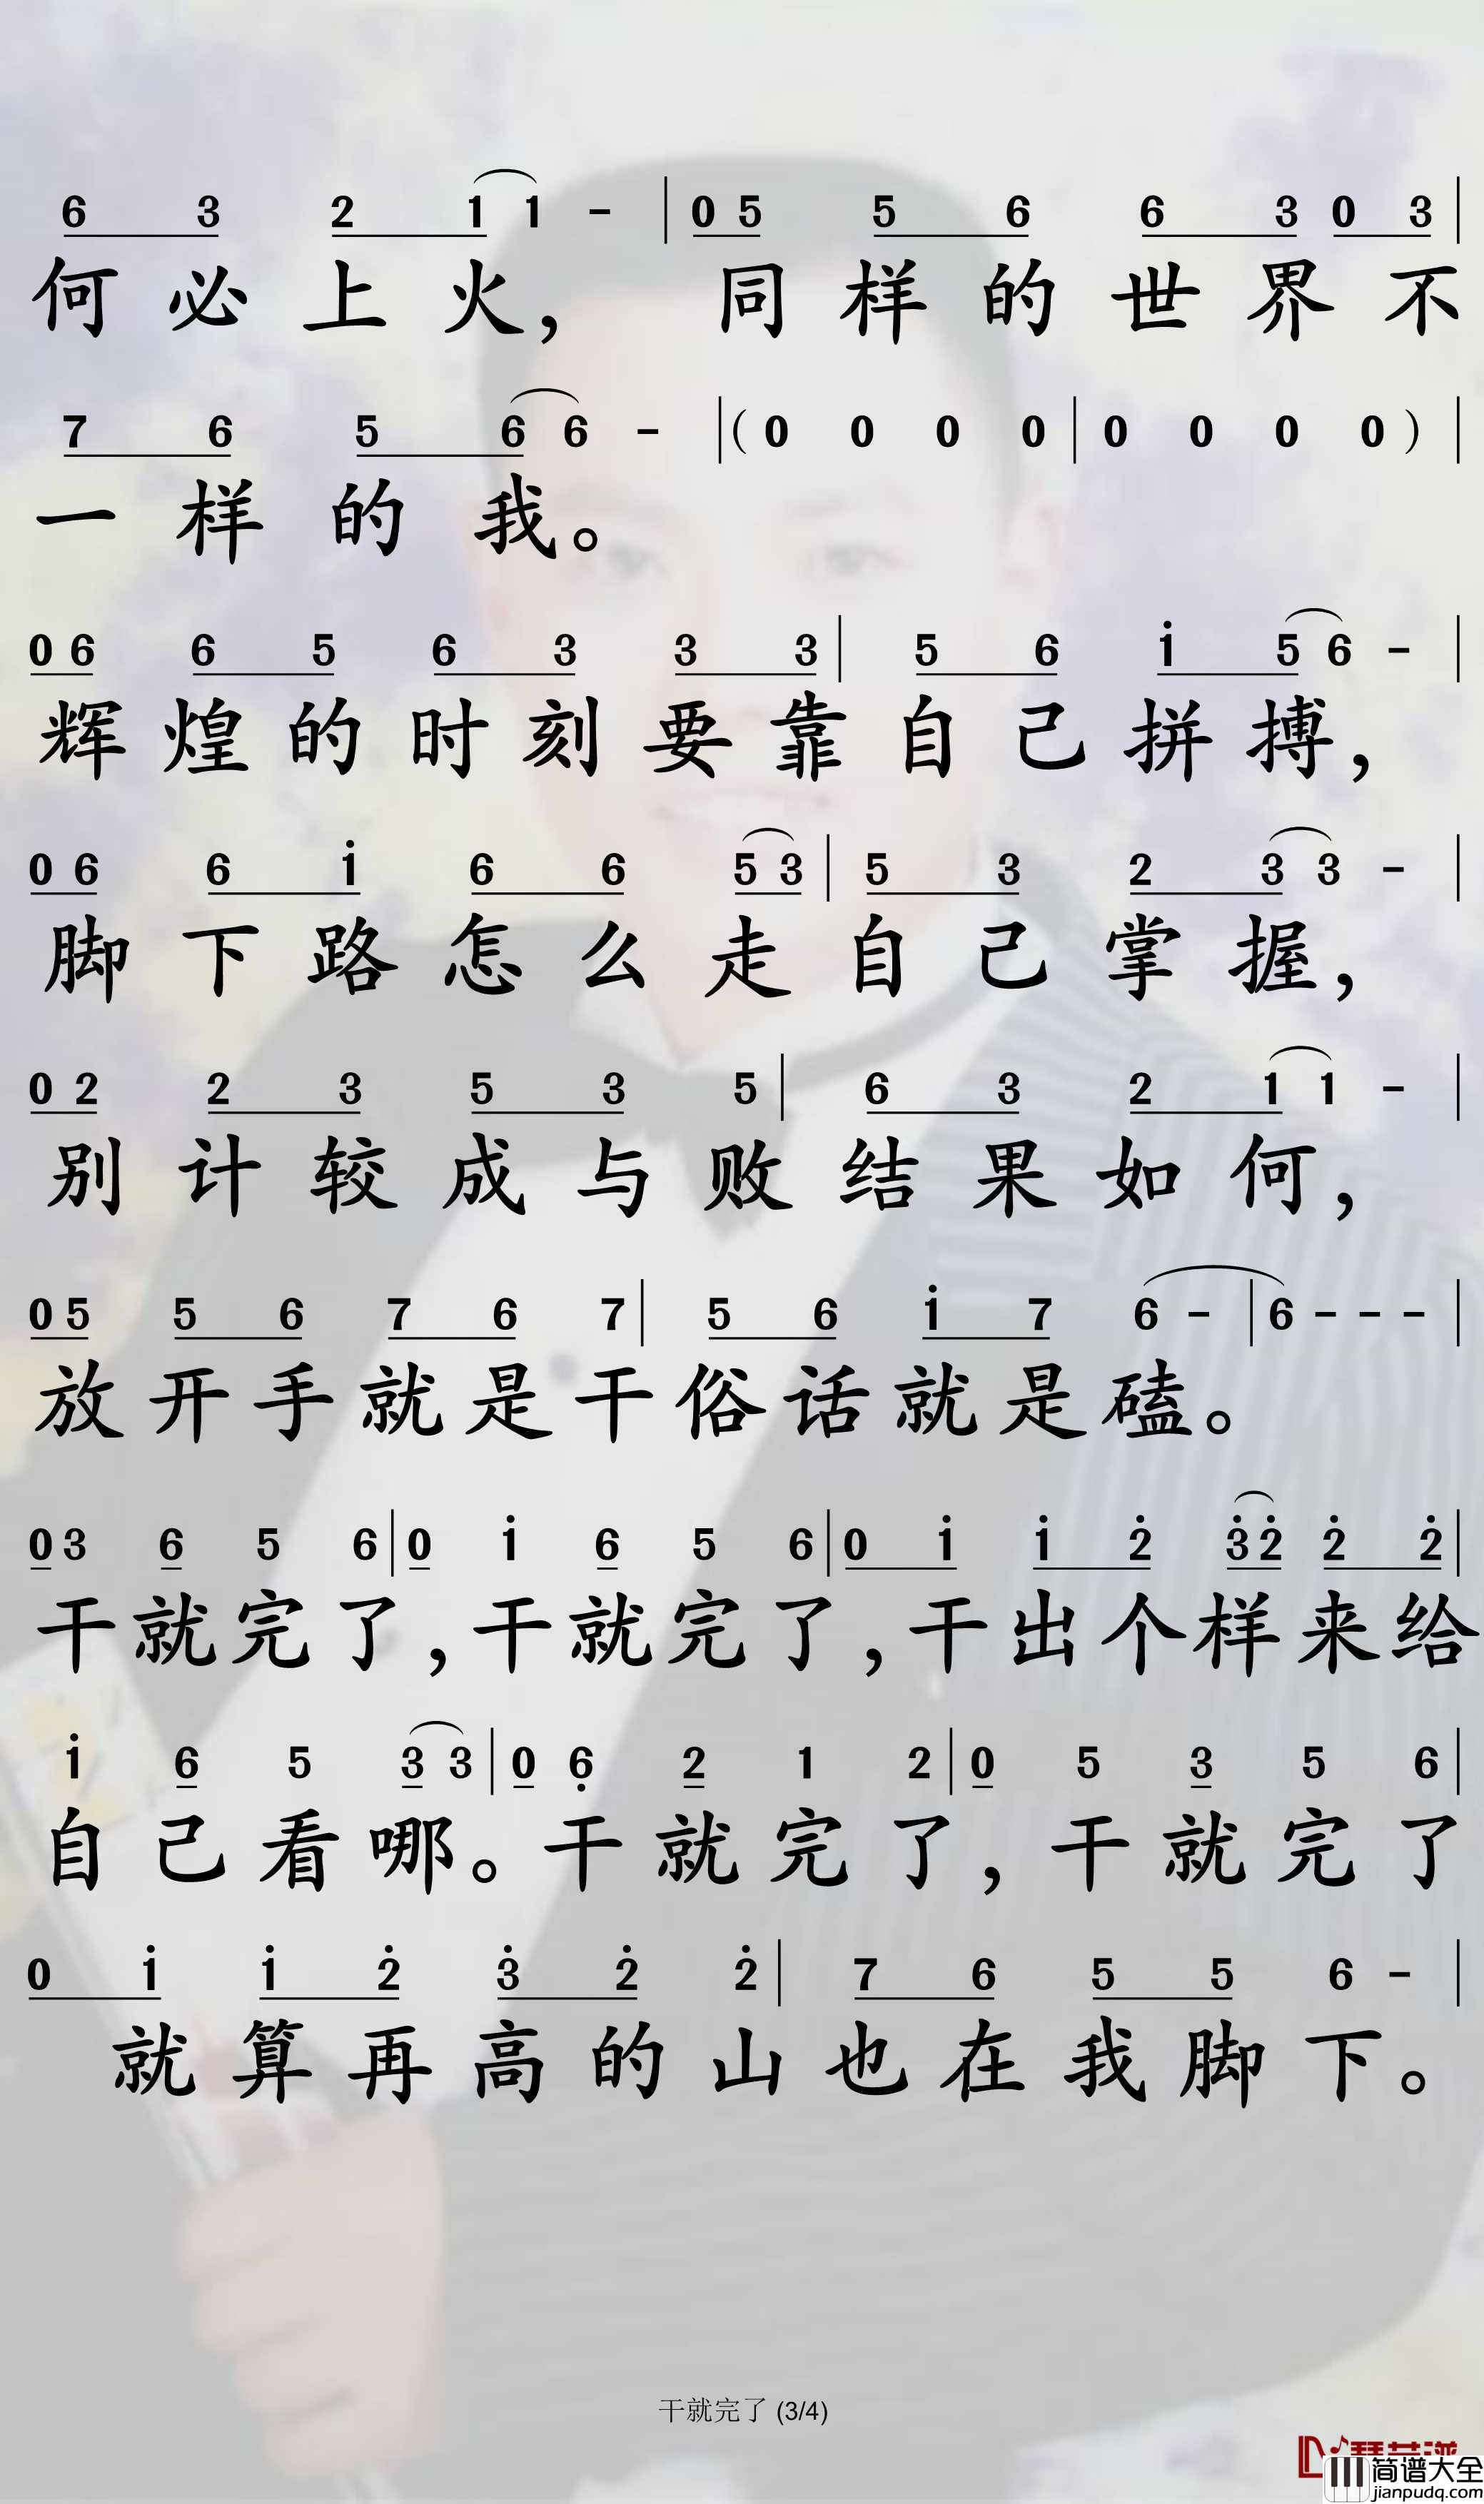 6 3 2 1 1 - | 0 5 5 6 6 3 0 3 |
何必上火， 同样的世界不
7 6 5 6 6 - | (0 0 0 0 | 0 0 0 0) |
一样的我。
0 6 6 5 6 3 3 3 | 5 6 i 5 6 - |
辉煌的时刻要靠自己拼搏，
0 6 6 i 6 6 5 3 | 5 3 2 3 3 - |
脚下路怎么走自己掌握，
0 2 2 3 5 3 5 | 6 3 2 1 1 - |
别计较成与败结果如何，
0 5 5 6 7 6 7 | 5 6 i 7 6 - | 6 - - - |
放开手就是干俗话就是磕。
0 3 6 5 6 | 0 i 6 5 6 | 0 i i 2̇ 3̇ 2̇ 2̇ 2̇ |
干就完了，干就完了，干出个样来给
i 6 5 3 3 | 0 6̣ 2 1 2 | 0 5 3 5 6 |
自己看哪。干就完了，干就完了
0 i i 2̇ 3̇ 2̇ 2̇ | 7 6 5 5 6 - |
就算再高的山也在我脚下。
干就完了 (3/4)
简谱大全
jianpudq.com